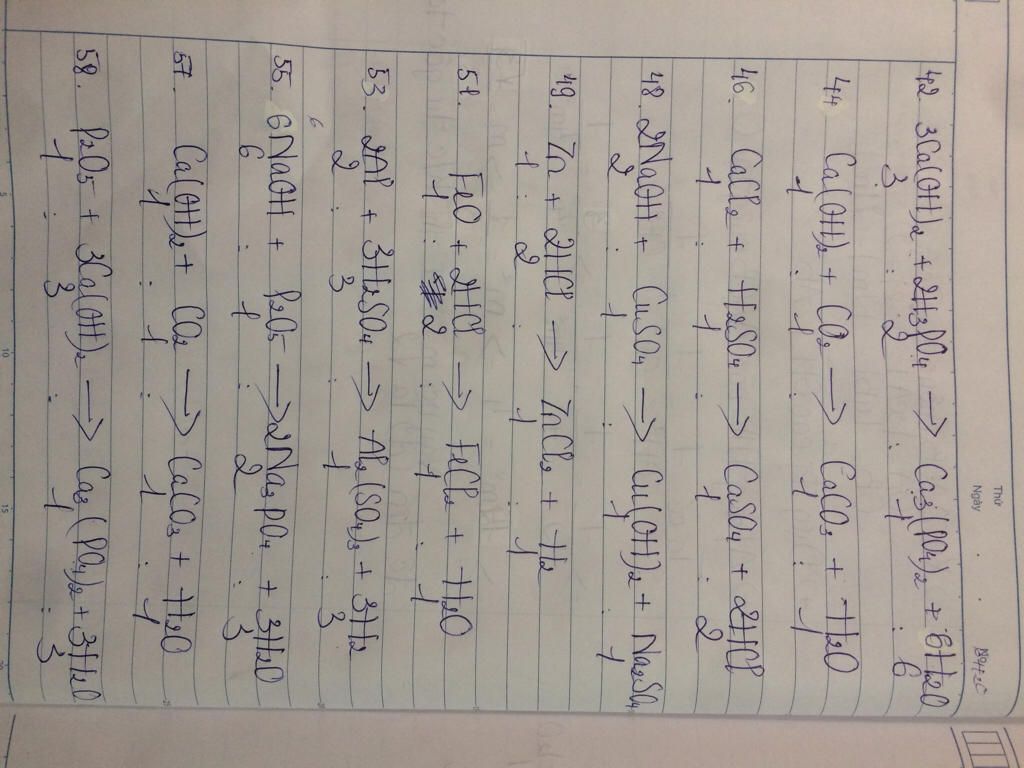 Thứ
Ngày
42. 3Ca(OH)₂ + 2H₃PO₄ → Ca₃(PO₄)₂ + 6H₂O
3 : 2 : 1 : 6
44. Ca(OH)₂ + CO₂ → CaCO₃ + H₂O
1 : 1 : 1 : 1
46. CaCl₂ + H₂SO₄ → CaSO₄ + 2HCl
1 : 1 : 1 : 2
48. 2NaOH + CuSO₄ → Cu(OH)₂ + Na₂SO₄
2 : 1 : 1 : 1
49. Zn + 2HCl → ZnCl₂ + H₂
1 : 2 : 1 : 1
51. FeO + 2HCl → FeCl₂ + H₂O
1 : 2 : 1 : 1
53. 2Al + 3H₂SO₄ → Al₂(SO₄)₃ + 3H₂
2 : 3 : 1 : 3
6
55. 6NaOH + P₂O₅ → 2Na₃PO₄ + 3H₂O
6 : 1 : 2 : 3
57. Ca(OH)₂ + CO₂ → CaCO₃ + H₂O
1 : 1 : 1 : 1
58. P₂O₅ + 3Ca(OH)₂ → Ca₃(PO₄)₂ + 3H₂O
1 : 3 : 1 : 3